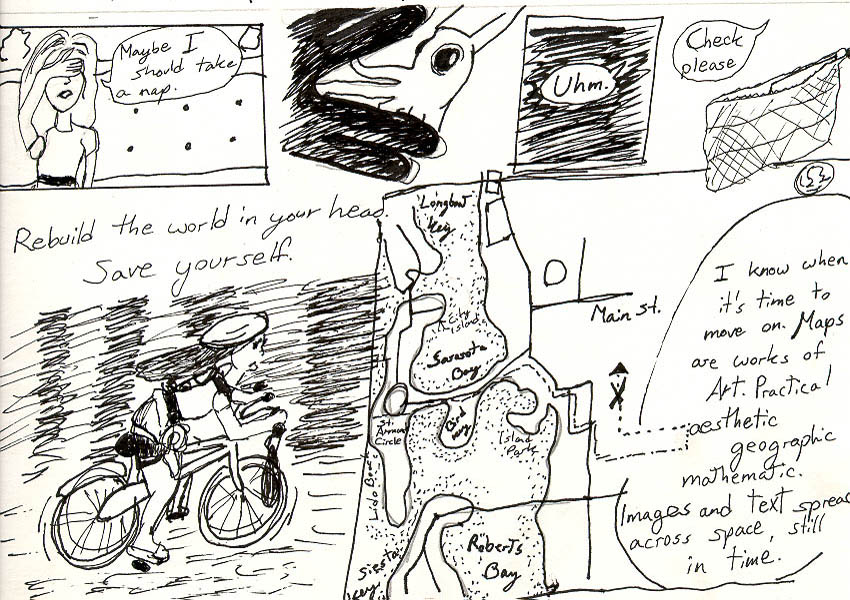 Maybe I
should take
a nap.
Uhm.
Check
please
Rebuild the world in your head.
Save yourself.
Longboat
Key
City
Island
Sarasota
Bay
St. Armand
Circle
Bird
Key
Island
Park
Lido Beach
Siesta
Key
Roberts
Bay
Main St.
X
I know when
it's time to
move on. Maps
are works of
Art. Practical
aesthetic
geographic
mathematic.
Images and text spread
across space, still
in time.